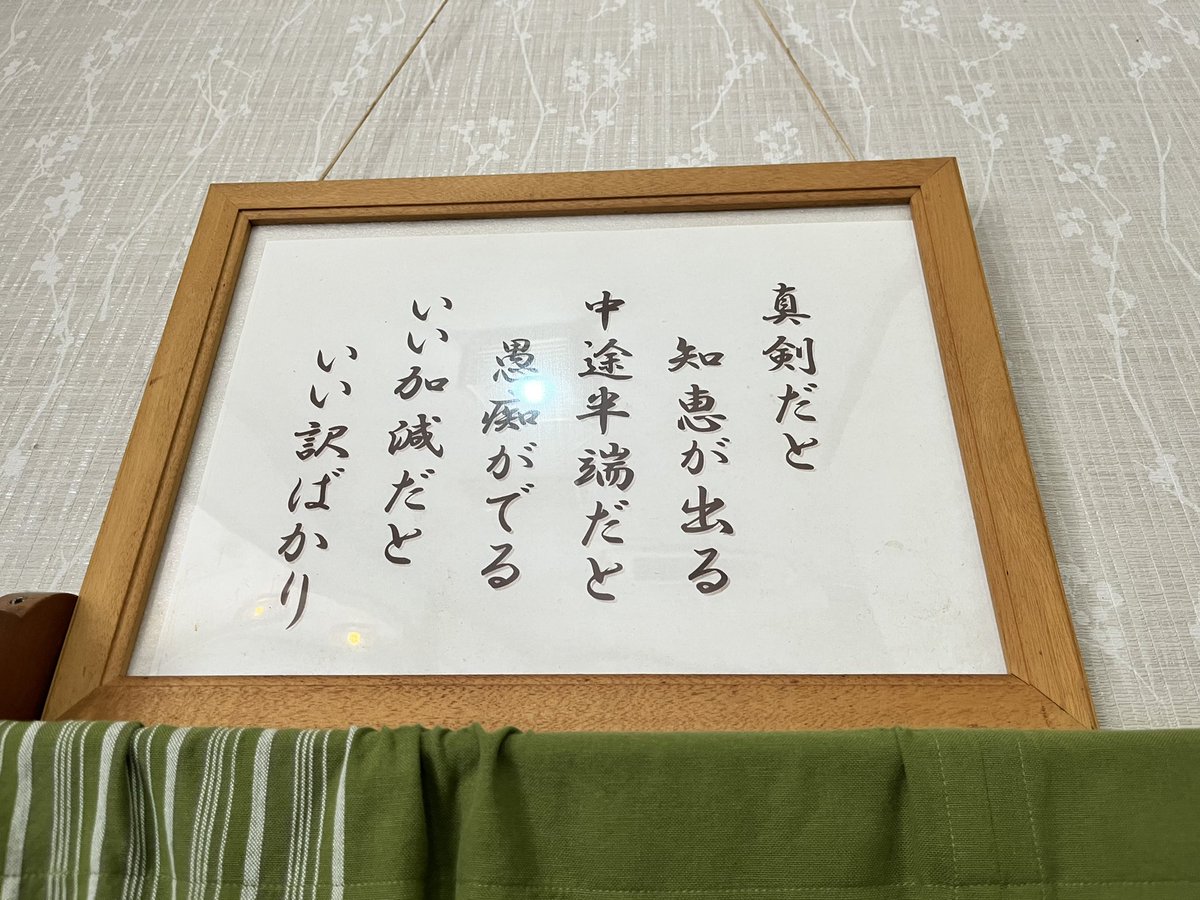 真剣だと
知恵が出る
中途半端だと
愚痴がでる
いい加減だと
いい訳ばかり